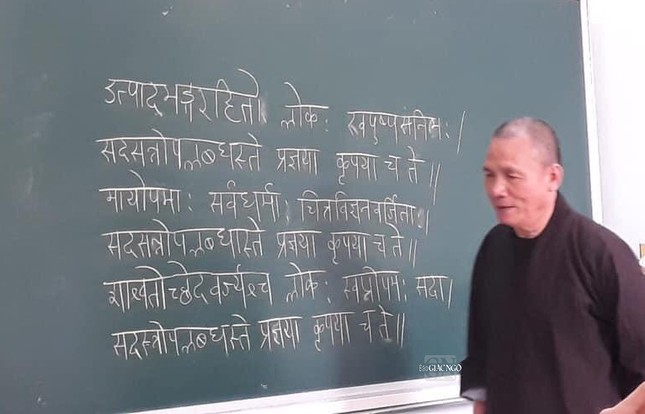 उत्पादभङ्गरहितो लोकः खपुष्पसंनिभः।
सदसन्नोपलब्धस्ते प्रज्ञया कृपया च ते॥
मायोपमाः सर्वधर्माः चित्तविज्ञानवर्जिताः।
सदसन्नोपलब्धास्ते प्रज्ञया कृपया च ते॥
शाश्वतोच्छेदवर्ज्यश्च लोकः स्वप्नोपमः सदा।
सदसन्नोपलब्धस्ते प्रज्ञया कृपया च ते॥
GIÁC NGỘ